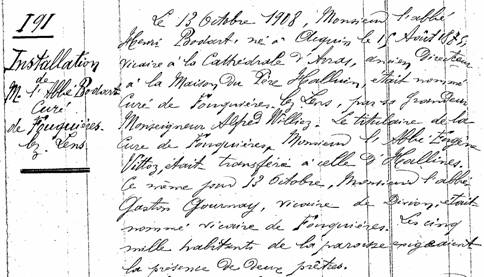 191
Installation
de
M. l'Abbé Bodart
Curé
de Fouquières-
lez Lens.
Le 13 Octobre 1908, Monsieur l'abbé
Henri Bodart, né à Oignies le 15 Août
vicaire à la Cathédrale d'Arras, ancien Directeur
à la Maison du Père Halluin, était nommé
Curé de Fouquières-lez Lens, par sa Grandeur
Monseigneur Alfred Williez. Le titulaire de la
Cure de Fouquières, Monsieur l'Abbé Eugène
était transféré à celle d'Hallines.
Le même jour 13 Octobre, Monsieur l'abbé
Gaston Gournay, vicaire de Divion, était
nommé vicaire de Fouquières. Les cinq
mille habitants de la paroisse exigeaient
la présence de deux prêtres.